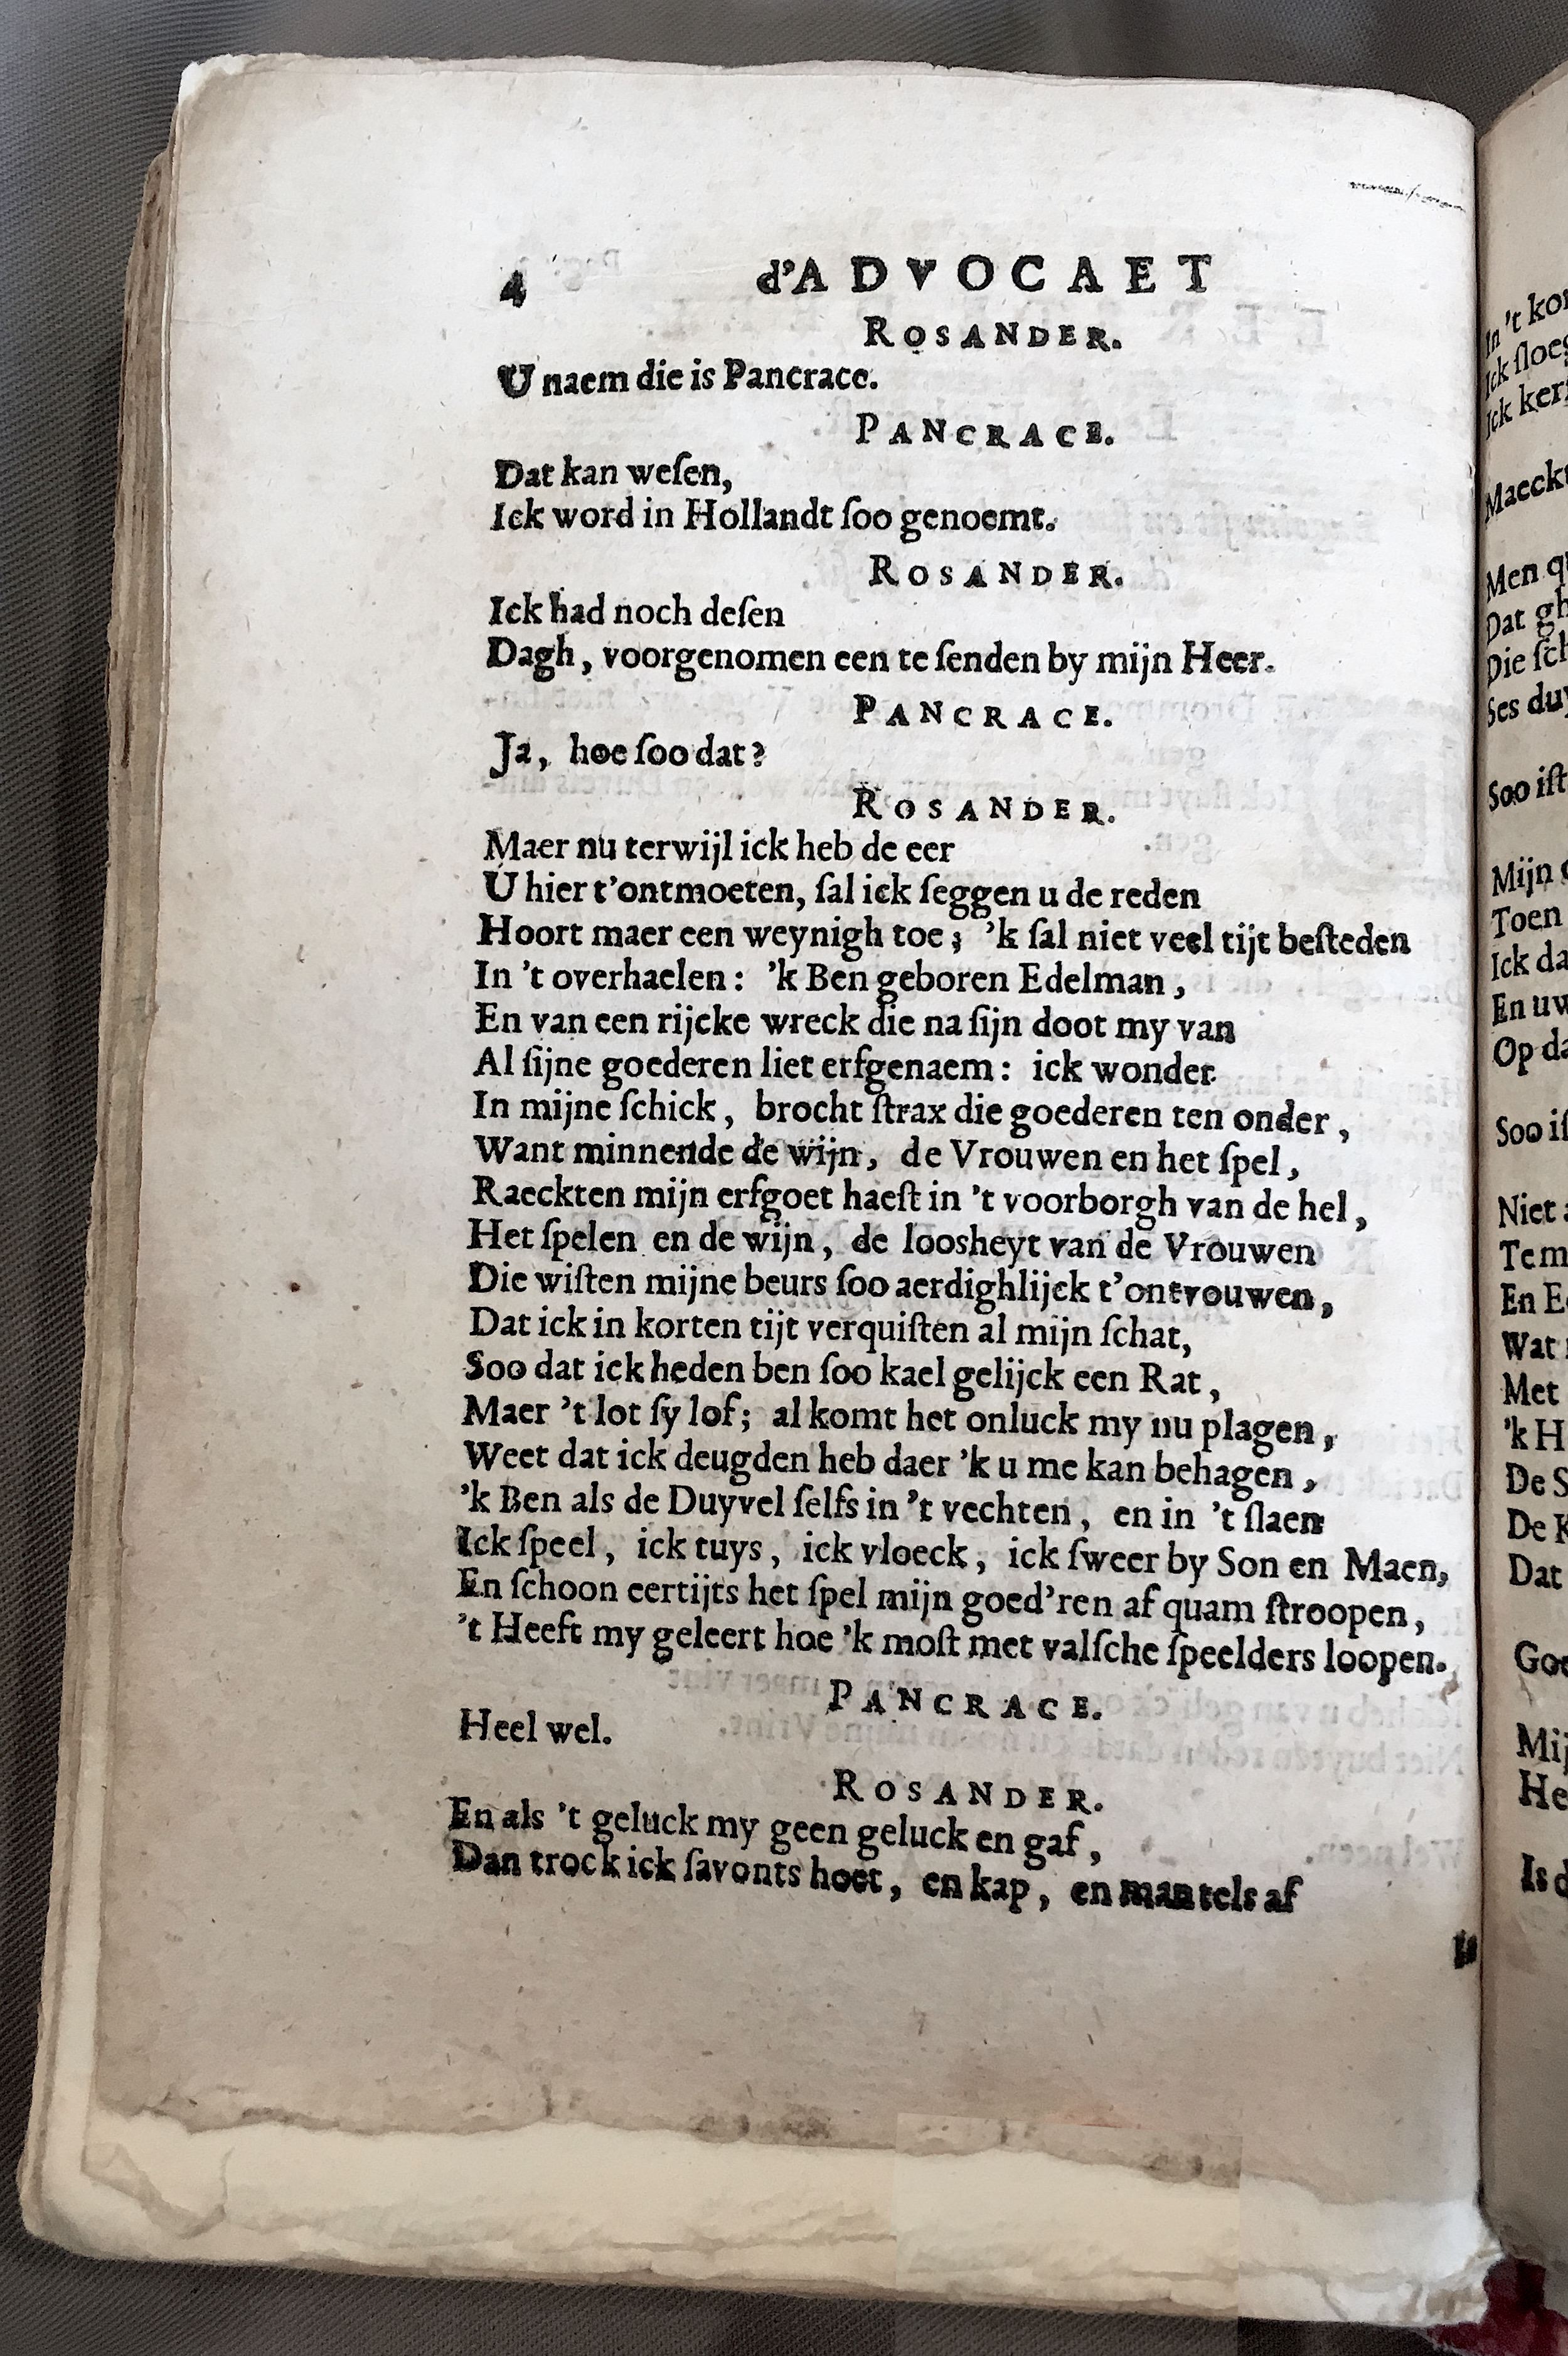 4 d'ADVOCAET
ROSANDER.
U naem die is Pancrace.
PANCRACE.
Dat kan weſen,
Ick word in Hollandt ſoo genoemt.
ROSANDER.
Ick had noch deſen
Dagh, voorgenomen een te ſenden by mijn Heer.
PANCRACE.
Ja, hoe ſoo dat?
ROSANDER.
Maer nu terwijl ick heb de eer
U hier t'ontmoeten, ſal ick ſeggen u de reden
Hoort maer een weynigh toe; 'k ſal niet veel tijt beſteden
In 't overhaelen: 'k Ben geboren Edelman,
En van een rijcke wreck die na ſijn doot my van
Al ſijne goederen liet erfgenaem: ick wonder
In mijne ſchick, brocht ſtrax die goederen ten onder,
Want minnende de wijn, de Vrouwen en het ſpel,
Raeckten mijn erfgoet haeſt in 't voorborgh van de hel,
Het ſpelen en de wijn, de loosheyt van de Vrouwen
Die wiſten mijne beurs ſoo aerdighlijck t'ontvouwen,
Dat ick in korten tijt verquiſten al mijn ſchat,
Soo dat ick heden ben ſoo kael gelijck een Rat,
Maer 't lot ſy lof; al komt het onluck my nu plagen,
Weet dat ick deugden heb daer 'k u me kan behagen,
'k Ben als de Duyvel ſelfs in 't vechten, en in 't ſlaen
Ick ſpeel, ick tuys, ick vloeck, ick ſweer by Son en Maen,
En ſchoon eertijts het ſpel mijn goed'ren af quam ſtroopen,
't Heeft my geleert hoe 'k moſt met valſche ſpeelders loopen.
PANCRACE.
Heel wel.
ROSANDER.
En als 't geluck my geen geluck en gaf,
Dan trock ick ſavonts hoet, en kap, en mantels af
In 't
Ick ſloeg
Ick
Maeckt
Men
Dat gh
Die ſch
Ses duy
Soo iſt
Mijn
Toen
Ick da
En uw
Op da
Soo iſ
Niet
Tem
En E
Wat
Met
'k H
De S
De K
Dat
Goe
Mij
He
Is d